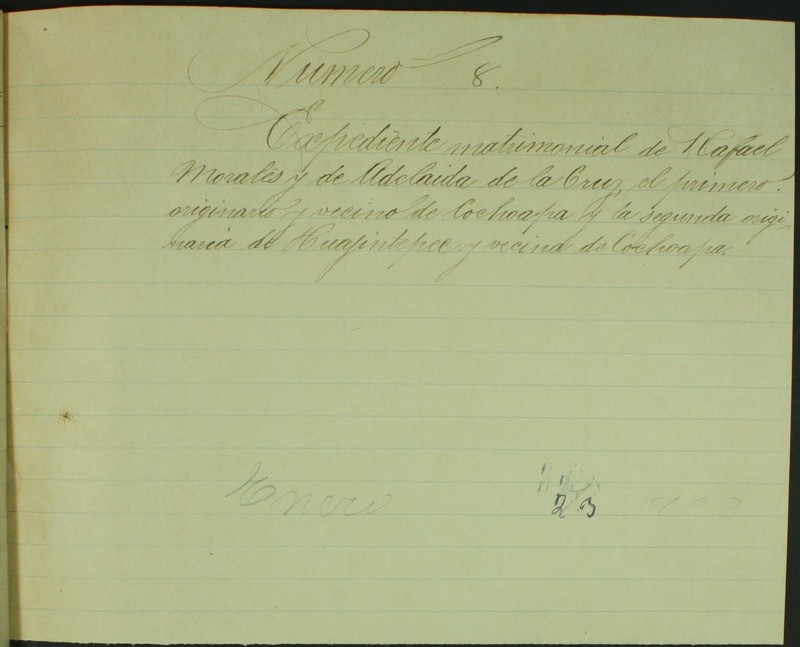 Numero 8.
Expediente matrimonial de Rafael
Morales y de Adelaida de la Cruz, el primero
originario y vecino de Cochoapa y la segunda origi-
naria de Huajintepec y vecina de Cochoapa.
Enero 23